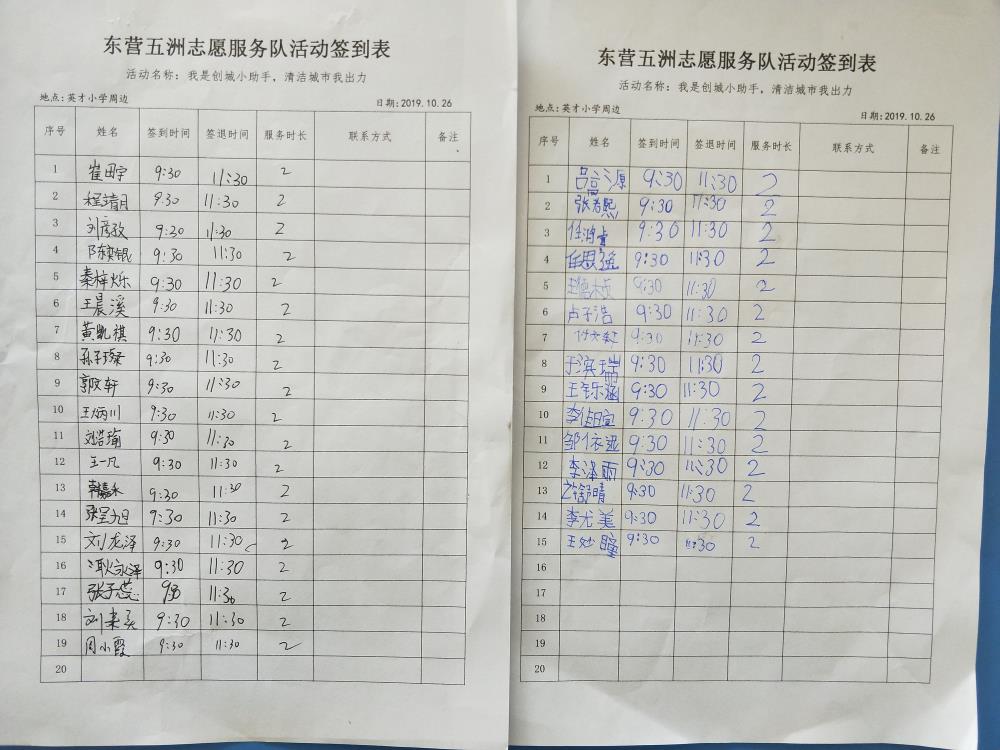 东营五洲志愿服务队活动签到表
活动名称：我是创城小助手，清洁城市我出力
地点：英才小学周边 日期：2019.10.26
序号 姓名 签到时间 签退时间 服务时长 联系方式 备注
1 崔田宇 9:30 11:30 2
2 程靖月 9:30 11:30 2
3 刘彦孜 9:30 11:30 2
4 陈奕锟 9:30 11:30 2
5 秦梓烁 9:30 11:30 2
6 王晨溪 9:30 11:30 2
7 黄凯祺 9:30 11:30 2
8 孙子璨 9:30 11:30 2
9 郭文轩 9:30 11:30 2
10 王炳川 9:30 11:30 2
11 刘浩瑜 9:30 11:30 2
12 王一凡 9:30 11:30 2
13 韩嘉禾 9:30 11:30 2
14 张呈旭 9:30 11:30 2
15 刘龙泽 9:30 11:30 2
16 耿泳泽 9:30 11:30 2
17 张子蕊 9:30 11:30 2
18 刘来 9:30 11:30 2
19 周小霞 9:30 11:30 2
20
东营五洲志愿服务队活动签到表
活动名称：我是创城小助手，清洁城市我出力
地点：英才小学周边 日期：2019.10.26
序号 姓名 签到时间 签退时间 服务时长 联系方式 备注
1 9:30 11:30 2
2 张君熙 9:30 11:30 2
3 任鸿 9:30 11:30 2
4 任思 9:30 11:30 2
5 9:30 11:30 2
6 卢子浩 9:30 11:30 2
7 9:30 11:30 2
8 于滨瑞 9:30 11:30 2
9 王铄涵 9:30 11:30 2
10 李佳宜 9:30 11:30 2
11 邹依 9:30 11:30 2
12 李泽丽 9:30 11:30 2
13 许舒晴 9:30 11:30 2
14 李尤美 9:30 11:30 2
15 王妙瞳 9:30 11:30 2
16
17
18
19
20